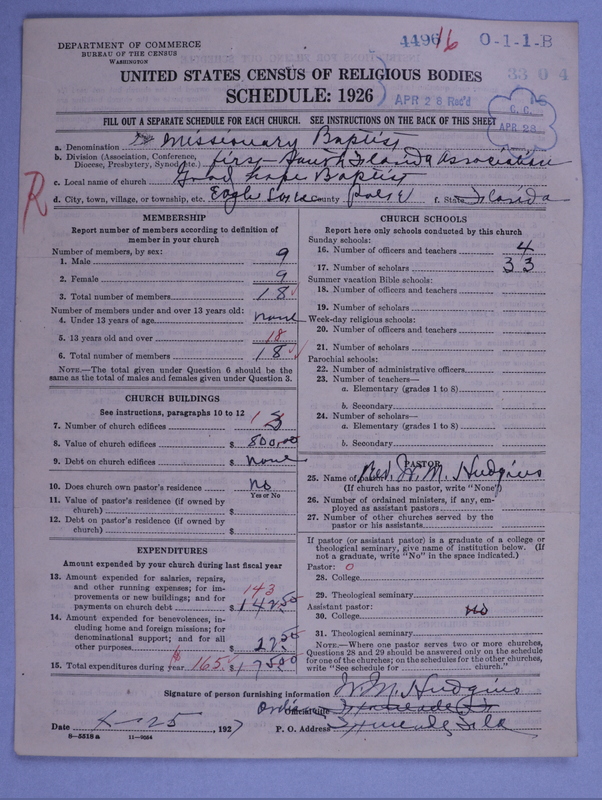 DEPARTMENT OF COMMERCE
BUREAU OF THE CENSUS
WASHINGTON
4496 16 0-1-1-B
3304
UNITED STATES CENSUS OF RELIGIOUS BODIES
SCHEDULE: 1926
APR 28 Rec'd
C. C.
APR 28
FILL OUT A SEPARATE SCHEDULE FOR EACH CHURCH. SEE INSTRUCTIONS ON THE BACK OF THIS SHEET
a. Denomination Missionary Baptist
b. Division (Association, Conference, Diocese, Presbytery, Synod, etc.) first South Florida Association
c. Local name of church Good hope Baptist
d. City, town, village, or township, etc. Eagle Lake County Polk f. State Florida
R
MEMBERSHIP
Report number of members according to definition of member in your church
Number of members, by sex:
1. Male 9
2. Female 9
3. Total number of members 18
Number of members under and over 13 years old:
4. Under 13 years of age none
5. 13 years old and over 18
6. Total number of members 18
NOTE.—The total given under Question 6 should be the same as the total of males and females given under Question 3.
CHURCH BUILDINGS
See instructions, paragraphs 10 to 12
7. Number of church edifices 1
8. Value of church edifices $ 800.00
9. Debt on church edifices $ none
10. Does church own pastor's residence no
Yes or No
11. Value of pastor's residence (if owned by church) $
12. Debt on pastor's residence (if owned by church) $
EXPENDITURES
Amount expended by your church during last fiscal year
13. Amount expended for salaries, repairs, and other running expenses; for improvements or new buildings; and for payments on church debt $ 143 142.50
14. Amount expended for benevolences, including home and foreign missions; for denominational support; and for all other purposes $ 22.50
15. Total expenditures during year 165 $ 175.00
CHURCH SCHOOLS
Report here only schools conducted by this church
Sunday schools:
16. Number of officers and teachers 4
17. Number of scholars 33
Summer vacation Bible schools:
18. Number of officers and teachers
19. Number of scholars
Week-day religious schools:
20. Number of officers and teachers
21. Number of scholars
Parochial schools:
22. Number of administrative officers
23. Number of teachers—
a. Elementary (grades 1 to 8)
b. Secondary
24. Number of scholars—
a. Elementary (grades 1 to 8)
b. Secondary
PASTOR
25. Name of pastor Rev. W. M. Hudgins
(If church has no pastor, write "None")
26. Number of ordained ministers, if any, employed as assistant pastors
27. Number of other churches served by the pastor or his assistants
If pastor (or assistant pastor) is a graduate of a college or theological seminary, give name of institution below. (If not a graduate, write "No" in the space indicated.)
Pastor: 0
28. College
29. Theological seminary
Assistant pastor:
30. College no
31. Theological seminary
NOTE.—Where one pastor serves two or more churches, Questions 28 and 29 should be answered only on the schedule for one of the churches; on the schedules for the other churches, write "See schedule for church."
Signature of person furnishing information W. M. Hudgins
Official title
Date 4-25, 1927 P. O. Address Fla
8—5518a 11—9064